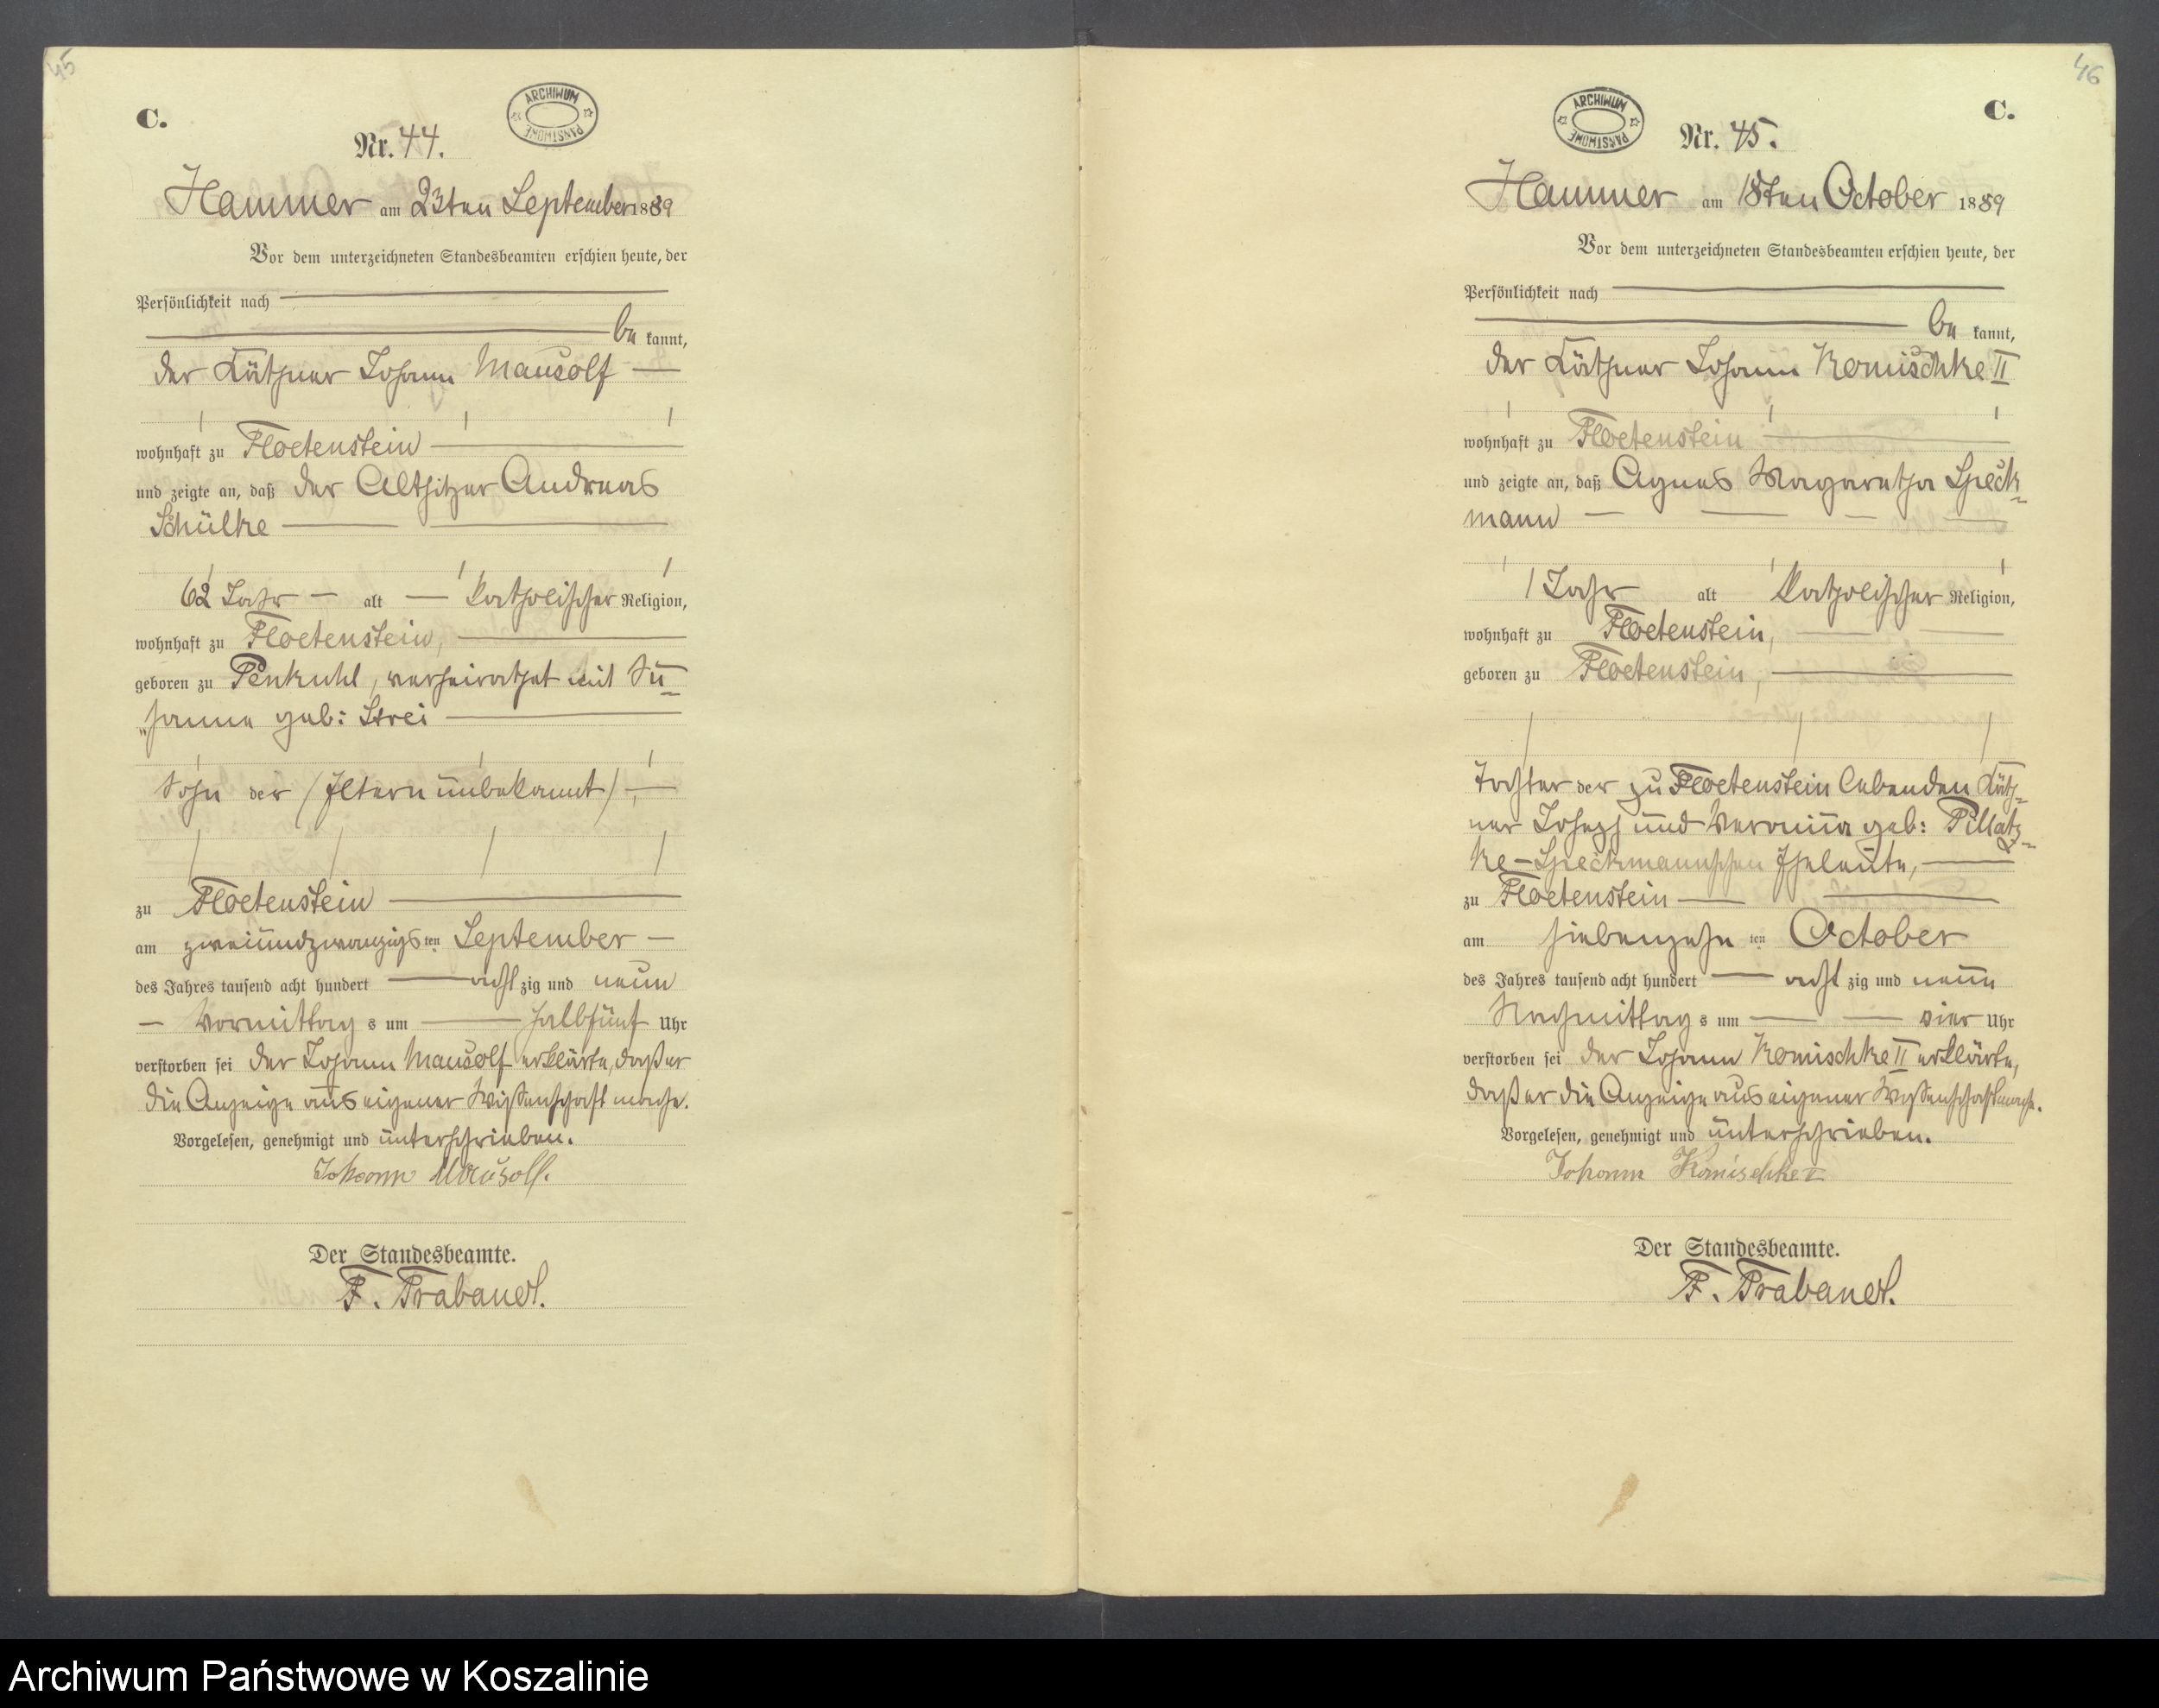 45
C.
ARCHIWUM PAŃSTWOWE
Nr. 44.
Hammer am 23ten September 1889
Vor dem unterzeichneten Standesbeamten erschien heute, der
Persönlichkeit nach
be kannt,
der Käthner Johann Mausolf
wohnhaft zu Floetenstein
und zeigte an, daß der Altsitzer Andreas
Schülke
62 Jahr alt katholischer Religion,
wohnhaft zu Floetenstein,
geboren zu Penkuhl, verheirathet mit Su-
sanna geb: Strei
Sohn der (Eltern unbekannt),
zu Floetenstein
am zweiundzwanzigs ten September
des Jahres tausend acht hundert acht zig und neun
Vormittag s um halbfünf Uhr
verstorben sei der Johann Mausolf erklärte, daß er
die Anzeige aus eigener Wissenschaft mache.
Vorgelesen, genehmigt und unterschrieben.
Johann Mausolf.
Der Standesbeamte.
F. Trabandt.
46
C.
ARCHIWUM PAŃSTWOWE
Nr. 45.
Hammer am 18ten October 1889
Vor dem unterzeichneten Standesbeamten erschien heute, der
Persönlichkeit nach
be kannt,
der Käthner Johann Komischke II
wohnhaft zu Floetenstein
und zeigte an, daß Agnes Magaretha Speck-
mann
1 Jahr alt katholischer Religion,
wohnhaft zu Floetenstein,
geboren zu Floetenstein,
Tochter der zu Floetenstein lebenden Käth-
ner Joseph und Veronica geb: Pillatz-
ke-Speckmannschen Eheleute,
zu Floetenstein
am siebenzehn ten October
des Jahres tausend acht hundert acht zig und neun
Nachmittag s um vier Uhr
verstorben sei der Johann Komischke II erklärte,
daß er die Anzeige aus eigener Wissenschaft mache.
Vorgelesen, genehmigt und unterschrieben.
Johann Komischke II
Der Standesbeamte.
F. Trabandt.
Archiwum Państwowe w Koszalinie